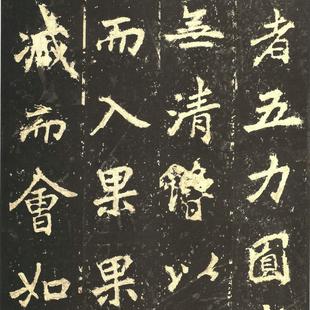 者五力圓
無清以
而入果果
滅而會如